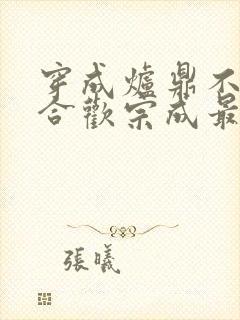 穿成爐鼎不
合歡宗成最
張曦